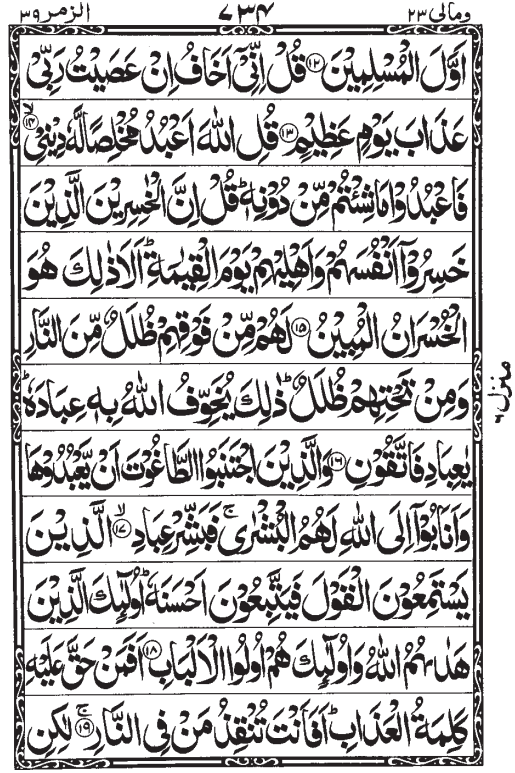 ومالی ۲۳ ۷۳۴ الزمر ۳۹
اَوَّلَ الْمُسْلِمِیْنَ ۱۲ قُلْ اِنِّیْۤ اَخَافُ اِنْ عَصَیْتُ رَبِّیْ
عَذَابَ یَوْمٍ عَظِیْمٍ ۱۳ قُلِ اللّٰهَ اَعْبُدُ مُخْلِصًا لَّهٗ دِیْنِیْ ۙ۱۴
فَاعْبُدُوْا مَا شِئْتُمْ مِّنْ دُوْنِهٖ ؕ قُلْ اِنَّ الْخٰسِرِیْنَ الَّذِیْنَ
خَسِرُوْۤا اَنْفُسَهُمْ وَاَهْلِیْهِمْ یَوْمَ الْقِیٰمَةِ ؕ اَلَا ذٰلِكَ هُوَ
الْخُسْرَانُ الْمُبِیْنُ ۱۵ لَهُمْ مِّنْ فَوْقِهِمْ ظُلَلٌ مِّنَ النَّارِ
وَمِنْ تَحْتِهِمْ ظُلَلٌ ؕ ذٰلِكَ یُخَوِّفُ اللّٰهُ بِهٖ عِبَادَهٗ ؕ
یٰعِبَادِ فَاتَّقُوْنِ ۱۶ وَالَّذِیْنَ اجْتَنَبُوا الطَّاغُوْتَ اَنْ یَّعْبُدُوْهَا
وَاَنَابُوْۤا اِلَی اللّٰهِ لَهُمُ الْبُشْرٰی ۚ فَبَشِّرْ عِبَادِ ۙ۱۷ الَّذِیْنَ
یَسْتَمِعُوْنَ الْقَوْلَ فَیَتَّبِعُوْنَ اَحْسَنَهٗ ؕ اُولٰٓئِكَ الَّذِیْنَ
هَدٰىهُمُ اللّٰهُ وَاُولٰٓئِكَ هُمْ اُولُوا الْاَلْبَابِ ۱۸ اَفَمَنْ حَقَّ عَلَیْهِ
كَلِمَةُ الْعَذَابِ ؕ اَفَاَنْتَ تُنْقِذُ مَنْ فِی النَّارِ ۚ۱۹ لٰكِنِ
منزل ۶